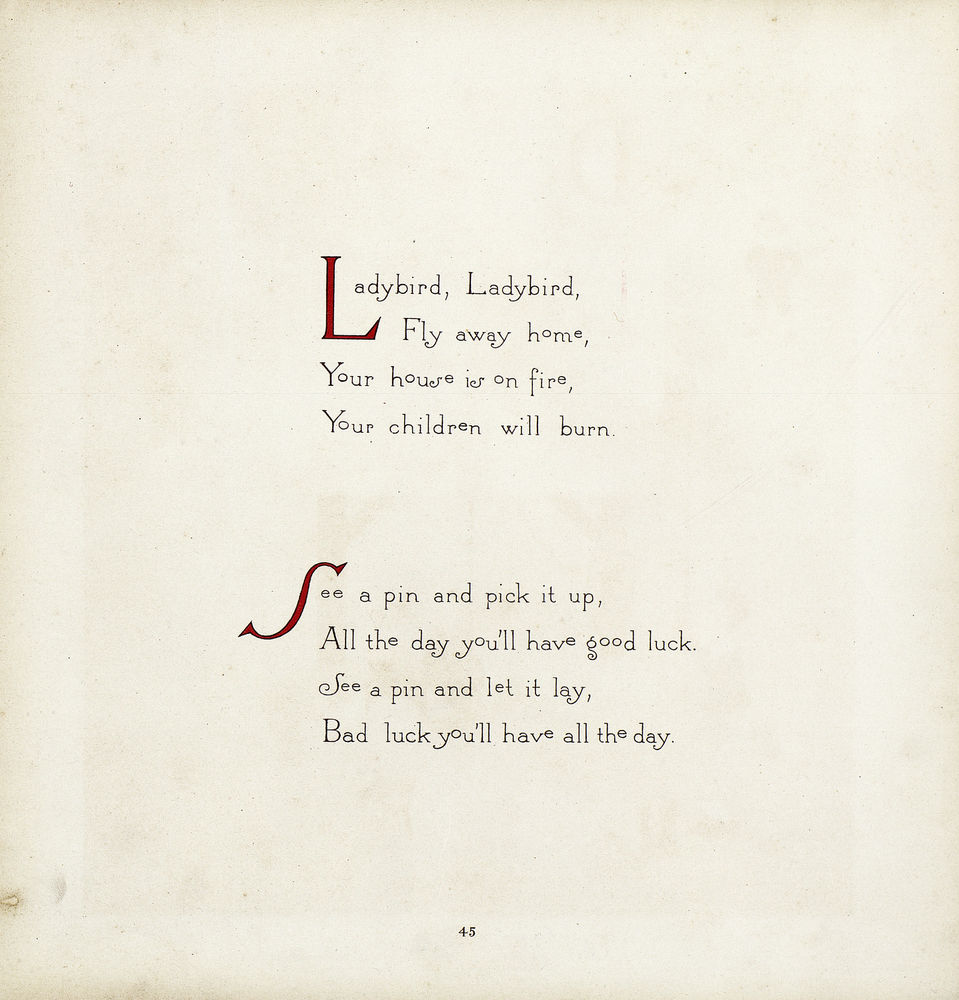 Ladybird, Ladybird,
Fly away home,
Your house is on fire,
Your children will burn.
See a pin and pick it up,
All the day you'll have good luck.
See a pin and let it lay,
Bad luck you'll have all the day.
45